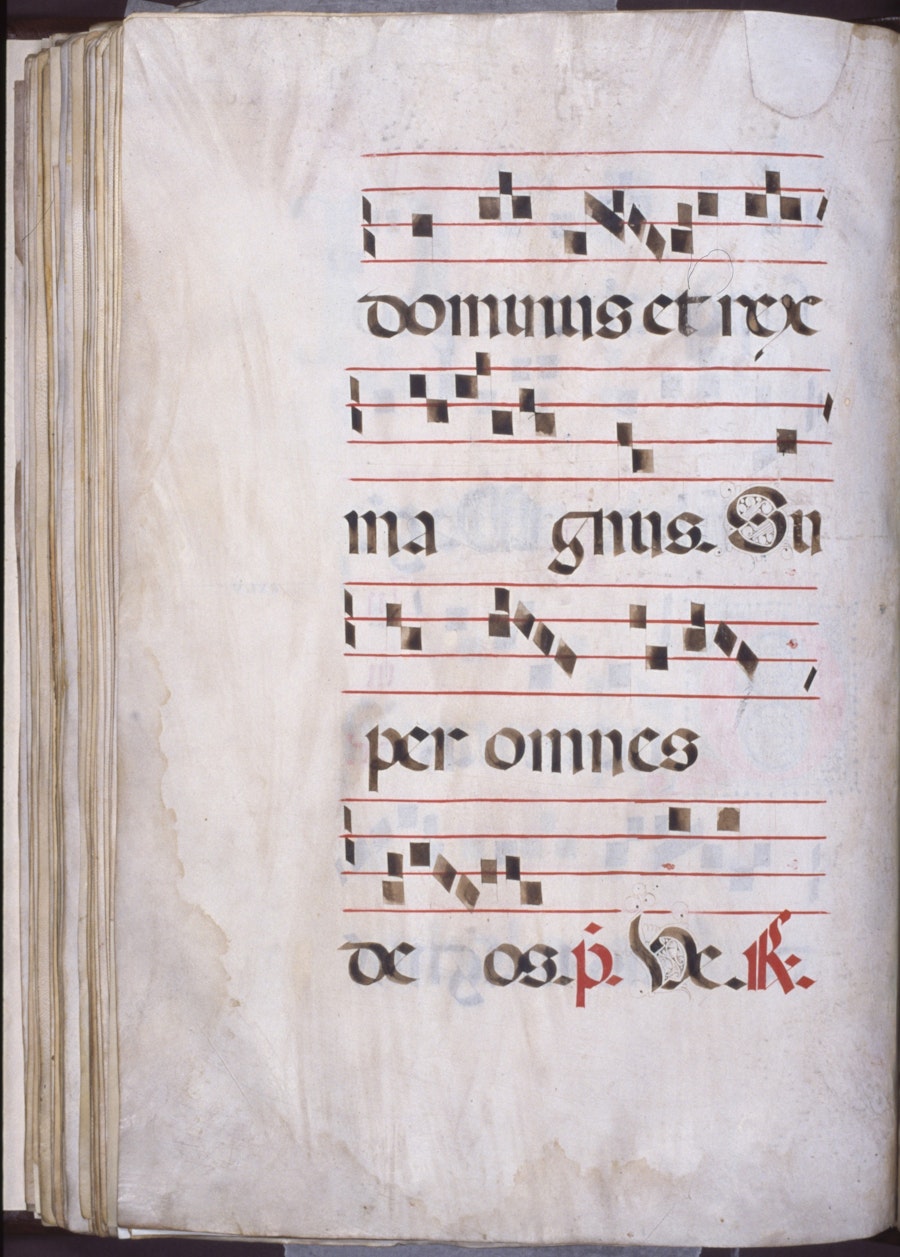 dominus et rex
ma gnus. Su
per omnes
de os. p̄. Ve. R.